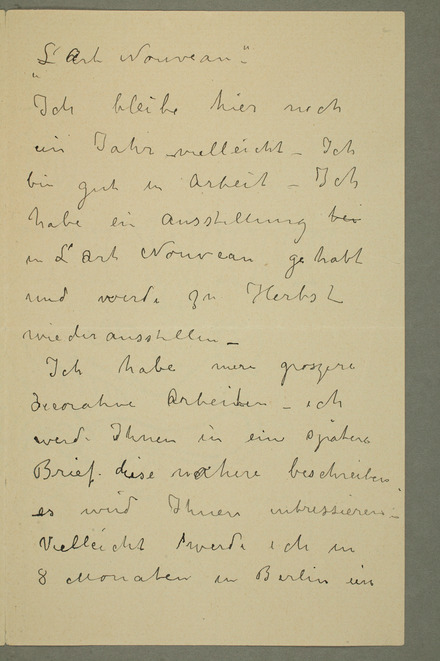 "L'Art Nouveau".
Ich bleibe hier noch
ein Jahr vielleicht – Ich
bin gut in Arbeit – Ich
habe ein Ausstellung bei
in L'art Nouveau gehabt
und werde zu Herbst
wieder ausstellen –
Ich habe mere groszere
Decorative Arbeiten – ich
werde Ihnen in eine spätere
Brief diese nähere beschreiben
es wird Ihnen intressieren –
Vielleicht werde ich in
8 Monaten in Berlin ein